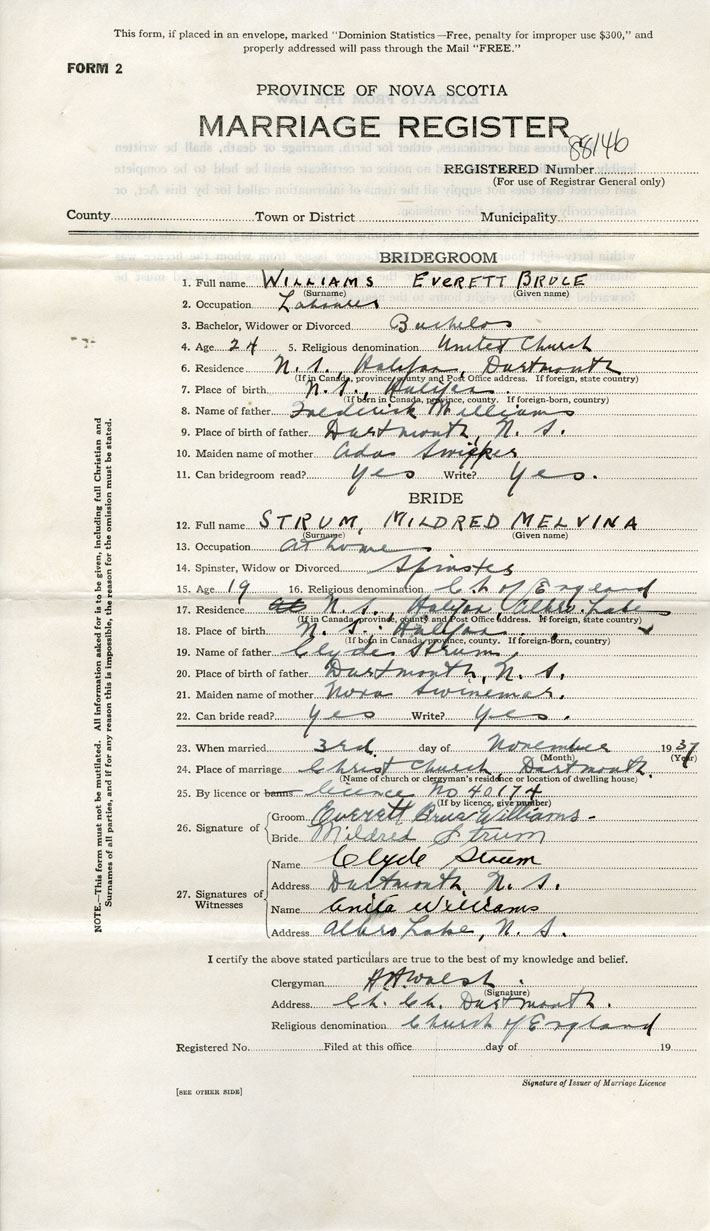 This form, if placed in an envelope, marked "Dominion Statistics—Free, penalty for improper use $300," and
properly addressed will pass through the Mail "FREE."
FORM 2
PROVINCE OF NOVA SCOTIA
MARRIAGE REGISTER
REGISTERED Number 88146
(For use of Registrar General only)
County Town or District Municipality
BRIDEGROOM
1. Full name WILLIAMS EVERETT BRUCE
(Surname) (Given name)
2. Occupation Labourer
3. Bachelor, Widower or Divorced Bachelor
4. Age 24 5. Religious denomination United Church
6. Residence N. S., Halifax, Dartmouth
(If in Canada, province, county and Post Office address. If foreign, state country)
7. Place of birth N. S., Halifax.
(If born in Canada, province, county. If foreign-born, country)
8. Name of father Frederick Williams
9. Place of birth of father Dartmouth, N. S.
10. Maiden name of mother Ada
11. Can bridegroom read? Yes Write? Yes.
BRIDE
12. Full name STRUM, MILDRED MELVINA
(Surname) (Given name)
13. Occupation At home
14. Spinster, Widow or Divorced Spinster
15. Age 19 16. Religious denomination Ch of England
17. Residence N. S., Halifax, Albro Lake
(If in Canada, province, county and Post Office address. If foreign, state country)
18. Place of birth N. S., Halifax
(If born in Canada, province, county. If foreign-born, country)
19. Name of father Clyde Strum,
20. Place of birth of father Dartmouth, N. S.
21. Maiden name of mother Nora Swinemar.
22. Can bride read? Yes Write? Yes.
23. When married 3rd day of November 1937
(Month) (Year)
24. Place of marriage Christ Church, Dartmouth.
(Name of church or clergyman's residence or location of dwelling house)
25. By licence or banns licence No 40174
(If by licence, give number)
26. Signature of
Groom Everett Brus Williams -
Bride Mildred Strum
27. Signatures of
Witnesses
Name Clyde Strum
Address Dartmouth N. S.
Name Anita Williams
Address Albro Lake, N. S.
I certify the above stated particulars are true to the best of my knowledge and belief.
Clergyman Walsh
(Signature)
Address Ch. Ch. Dartmouth.
Religious denomination Church of England
Registered No. Filed at this office day of 19
Signature of Issuer of Marriage Licence
[SEE OTHER SIDE]
NOTE.—This form must not be mutilated. All information asked for is to be given, including full Christian and
Surnames of all parties, and if for any reason this is impossible, the reason for the omission must be stated.